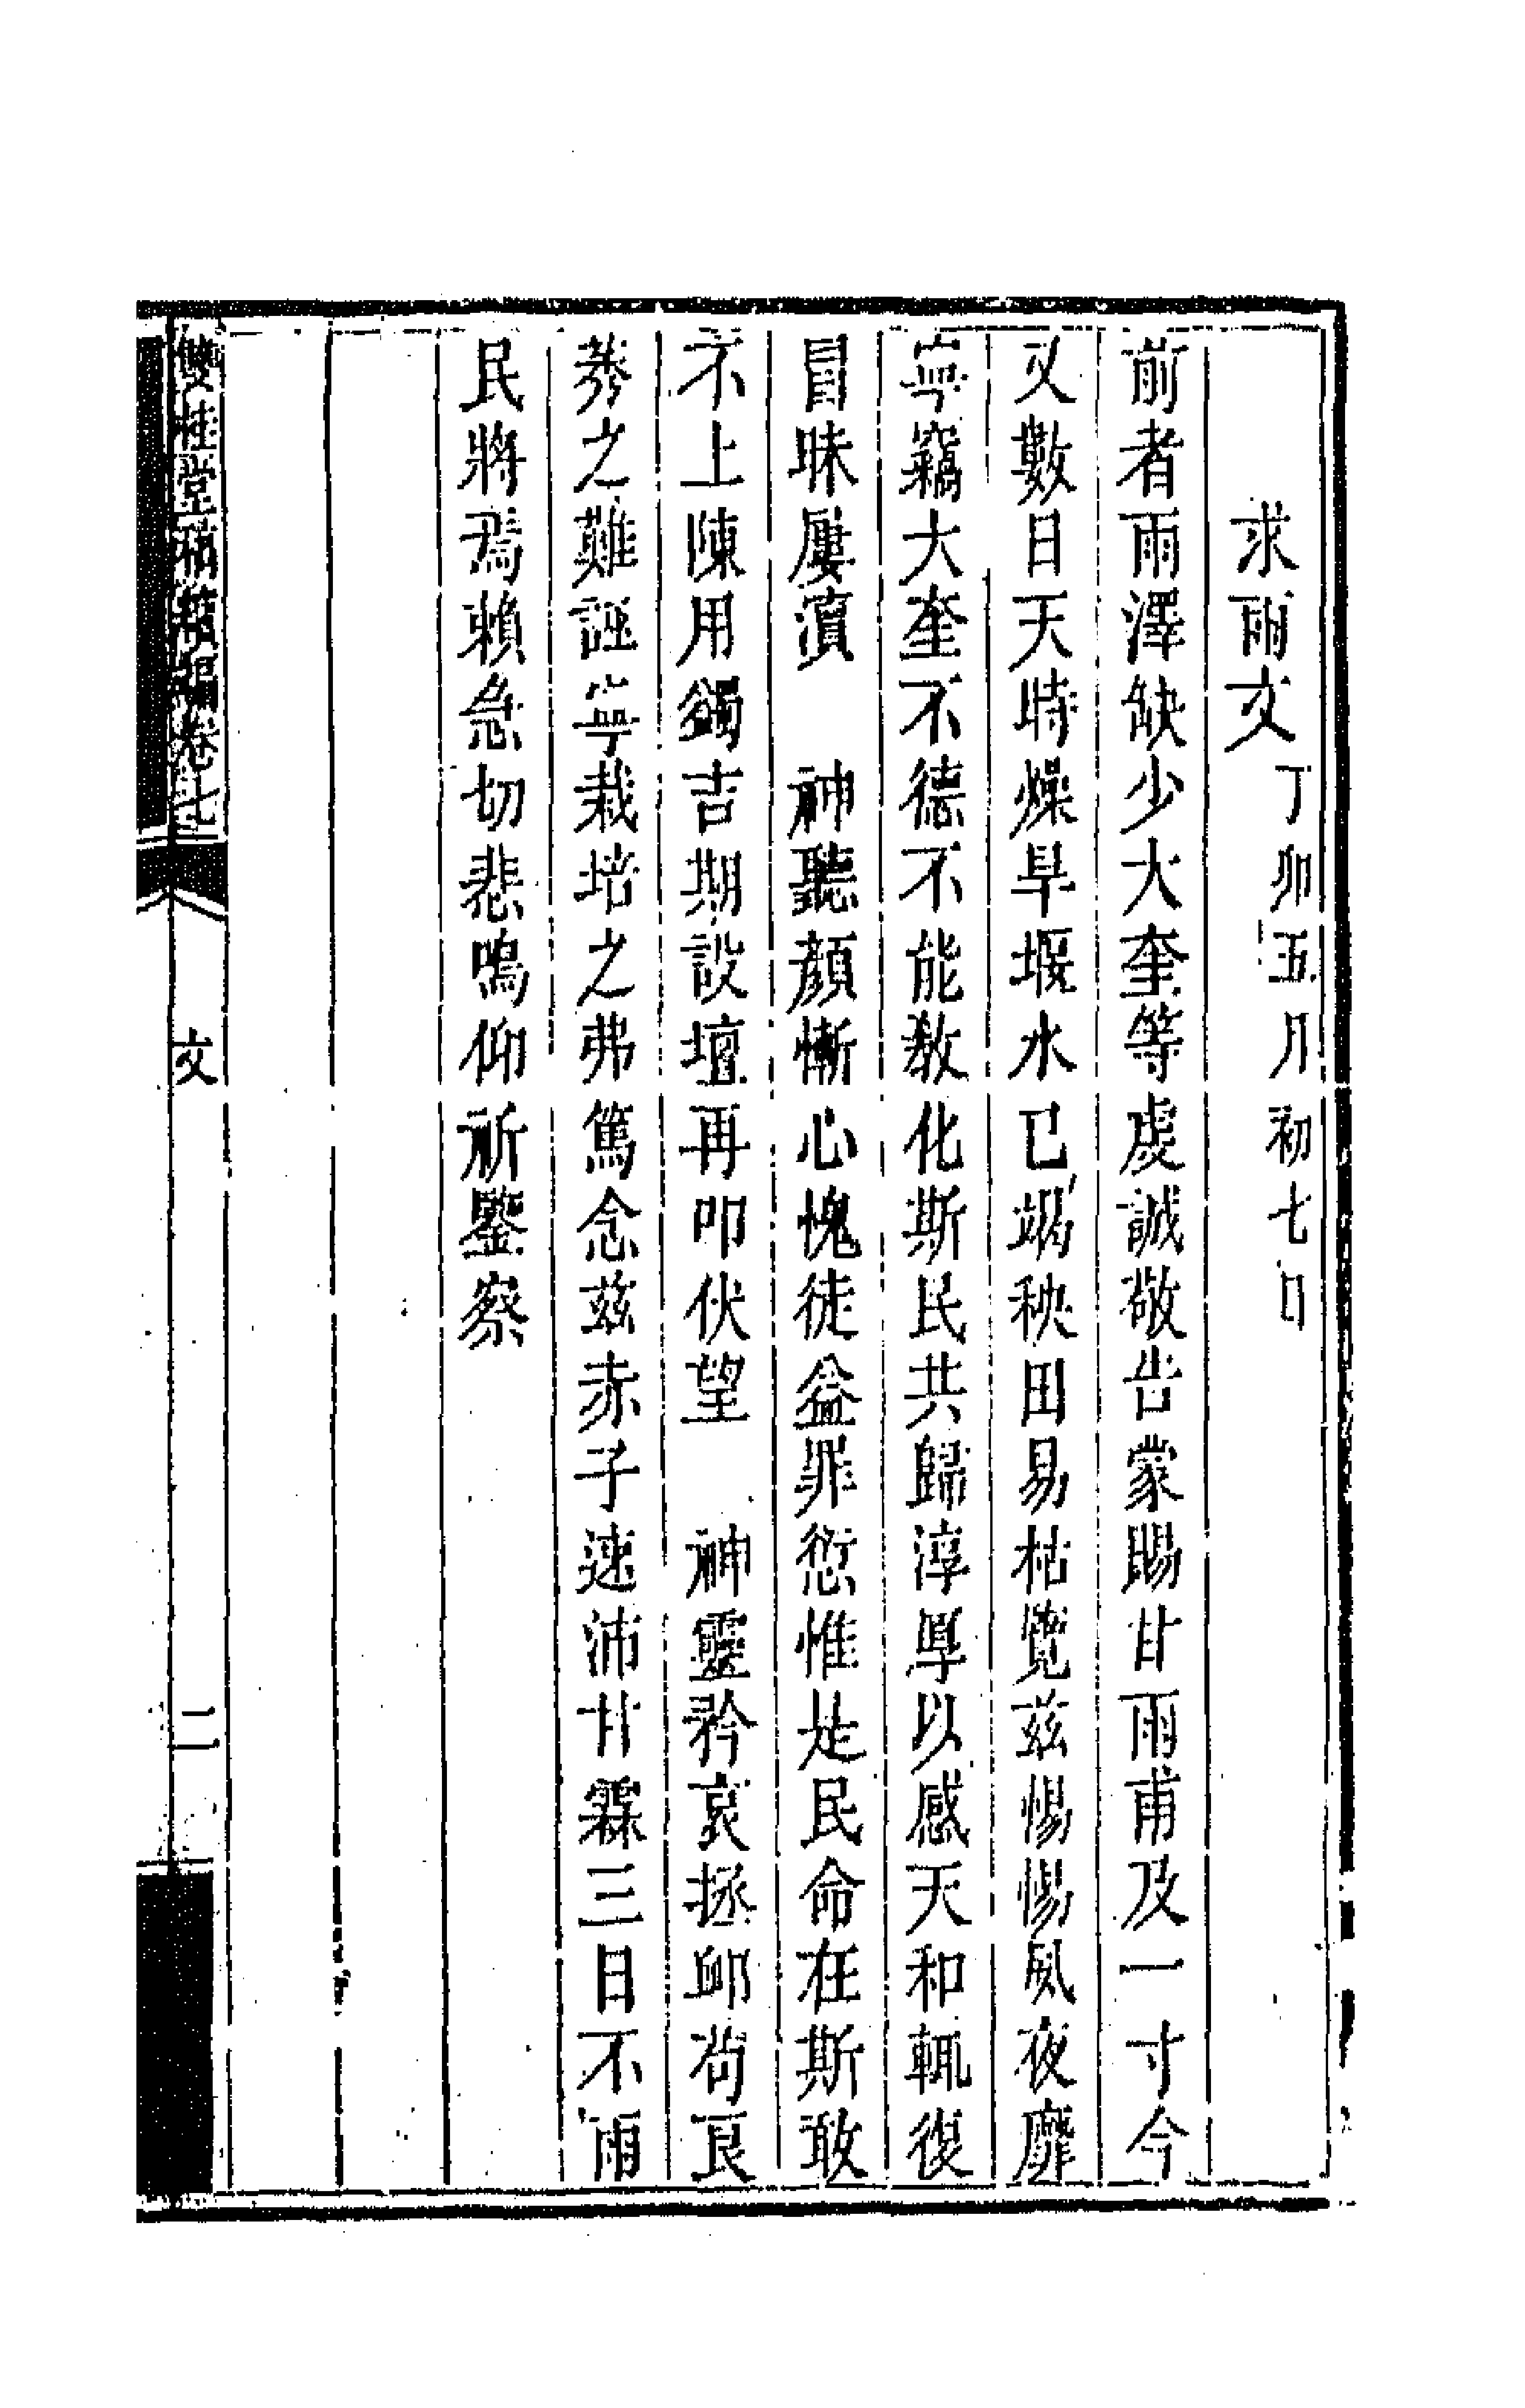 求雨文丁卯五月初七日
前者雨澤缺少大奎等虔誠敬告蒙賜甘雨甫及一寸今
又數日天時燥旱堰水已竭秧田易枯覽兹惕惕夙夜靡
寧竊大奎不德不能教化斯民共歸淳厚以感天和輒復
冒昧屢瀆　神聽顏慚心愧徒益罪愆惟是民命在斯敢
不上陳用蠲吉期設壇再叩伏望　神靈矜哀拯卹苟良
莠之難誣寧栽培之弗篤念兹赤子速沛甘霖三日不雨
民將焉賴急切悲鳴仰祈鑒察
雙桂堂稿續編卷七　文　二